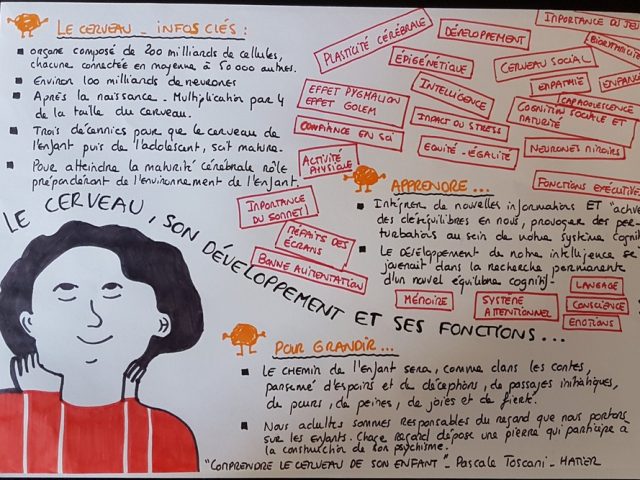 LE CERVEAU _ INFOS CLÉS :
ORGANE COMPOSÉ DE 200 MILLIARDS DE CELLULES,
CHACUNE CONNECTÉE EN MOYENNE À 50 000 AUTRES.
ENVIRON 100 MILLIARDS DE NEURONES
APRÈS LA NAISSANCE _ MULTIPLICATION PAR 4
DE LA TAILLE DU CERVEAU.
TROIS DÉCENNIES POUR QUE LE CERVEAU DE
L'ENFANT PUIS DE L'ADOLESCENT, SOIT MATURE.
POUR ATTEINDRE LA MATURITÉ CÉRÉBRALE RÔLE
PRÉPONDÉRANT DE L'ENVIRONNEMENT DE L'ENFANT.
PLASTICITÉ CÉRÉBRALE
DÉVELOPPEMENT
IMPORTANCE DU JEU
ÉPIGÉNÉTIQUE
CERVEAU SOCIAL
EMPATHIE
EFFET PYGMALION
EFFET GOLEM
INTELLIGENCE
COGNITION SOCIALE ET
MATURITÉ
CONFIANCE EN SOI
IMPACT DU STRESS
EQUITÉ - ÉGALITÉ
NEURONES MIROIRS
ACTIVITÉ
PHYSIQUE
IMPORTANCE
DU SOMMEIL
MÉFAITS DES
ÉCRANS
BONNE ALIMENTATION
LE CERVEAU, SON DÉVELOPPEMENT ET SES FONCTIONS...
APPRENDRE...
INTÉGRER DE NOUVELLES INFORMATIONS ET
DES DÉSÉQUILIBRES EN NOUS, PROVOQUER DES PER-
TURBATIONS AU SEIN DE NOTRE SYSTÈME
LE DÉVELOPPEMENT DE NOTRE INTELLIGENCE SE
JOUERAIT DANS LA RECHERCHE PERMANENTE
D'UN NOUVEL ÉQUILIBRE COGNITIF_
LANGAGE
MÉMOIRE
SYSTÈME
ATTENTIONNEL
CONSCIENCE
EMOTIONS
POUR GRANDIR...
LE CHEMIN DE L'ENFANT SERA, COMME DANS LES CONTES,
PARSEMÉ D'ESPOIRS ET DE DÉCEPTIONS, DE PASSAGES INITIATIQUES,
DE PEURS, DE PEINES, DE JOIES ET DE FIERTÉ.
NOUS ADULTES SOMMES RESPONSABLES DU REGARD QUE NOUS PORTONS
SUR LES ENFANTS. REGARD DÉPOSE UNE PIERRE QUI PARTICIPE À
LA CONSTRUCTION DE SON PSYCHISME.
"COMPRENDRE LE CERVEAU DE SON ENFANT" _ PASCALE TOSCANI _ HATIER